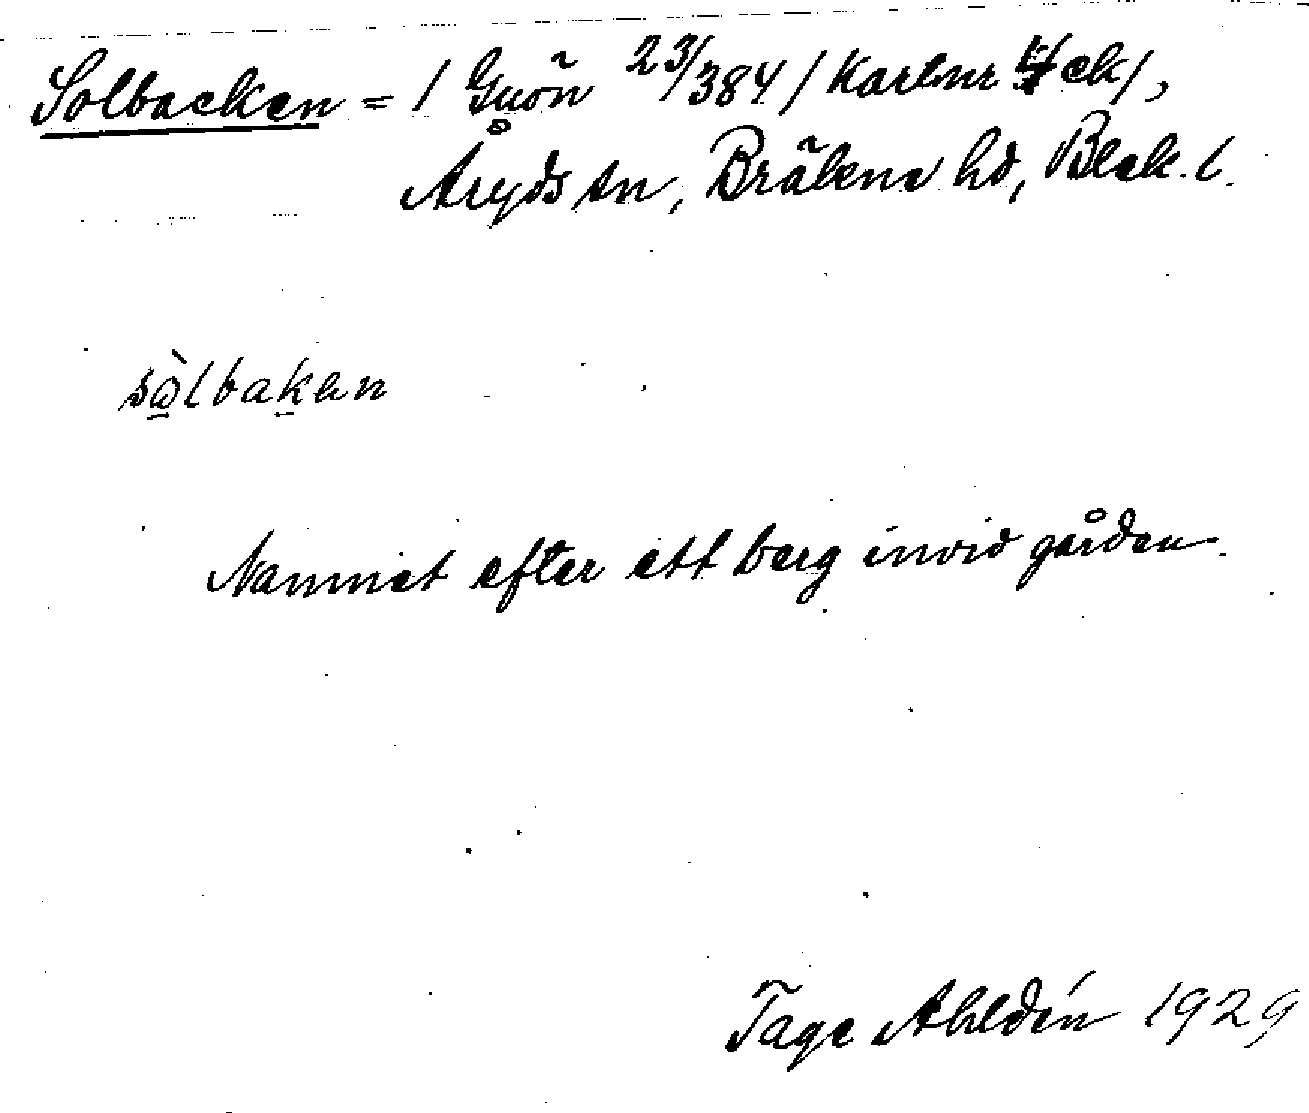 Solbacken = / Guön 23/384 / Kartnr 4 ek /,
Åryds sn, Bräkne hd, Blek. l.
sòlbakan
Namnet efter ett berg invid gården.
Tage Ahldén 1929